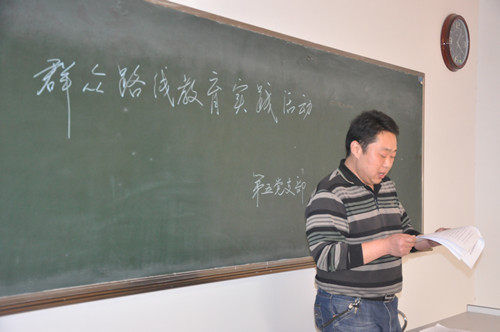 群众路线教育实践活动
第五党支部